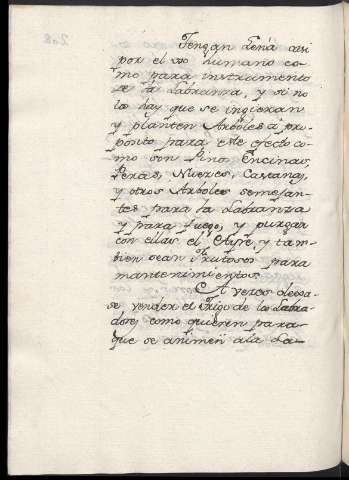 208
Tengan Leña asi
por el uso humano co-
mo para instrumento
de la Labranza, y si no
la hay que se ingieran
y planten Arboles à pro
posito para este efecto co-
mo son Pino Encinas,
Peras, Nueces, Castanas,
y otros Arboles semejan-
tes para la Labranza
y para fuego, y purgar
con ellas el Ayre, y tam-
bien sean frutosos para
mantenimientos
A veces dexa-
se vender el Trigo de los Labra-
dores, como quieren para
que se animen à la La-